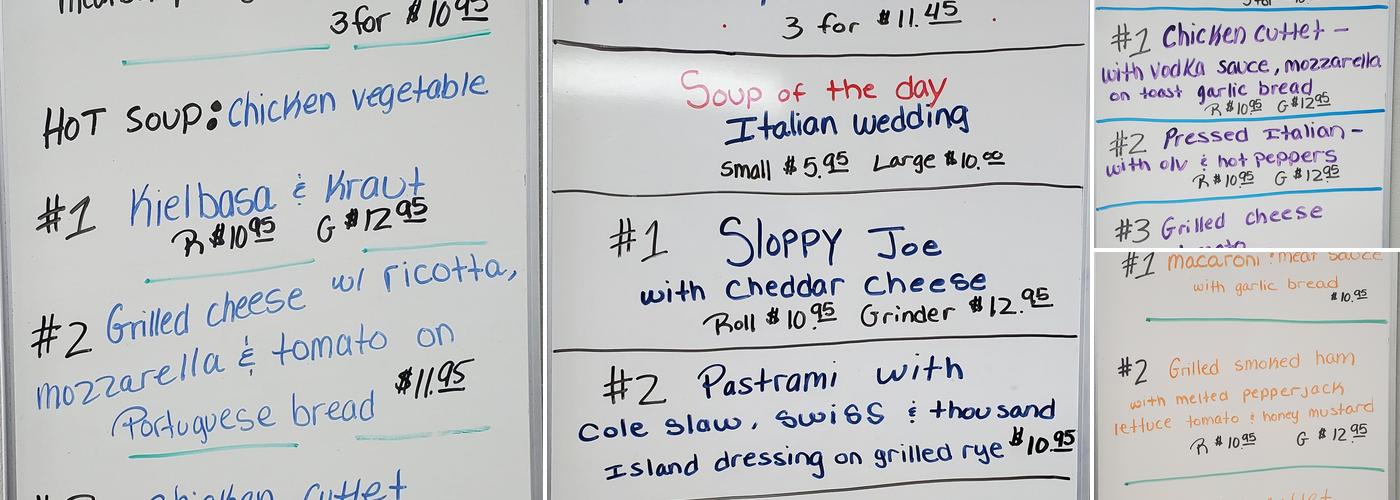 3 for $10.95
HOT SOUP: Chicken vegetable
#1 Kielbasa & Kraut
R $10.95 G $12.95
#2 Grilled cheese w/ ricotta,
mozzarella & tomato on
Portuguese bread $11.95
chicken cutlet
3 for $11.45
Soup of the day
Italian wedding
Small $5.95 Large $10.00
#1 Sloppy Joe
with cheddar cheese
Roll $10.95 Grinder $12.95
#2 Pastrami with
Cole slaw, swiss & thousand
Island dressing on grilled rye $10.95
#1 Chicken cutlet -
with vodka sauce, mozzarella
on toast garlic bread
R $10.95 G $12.95
#2 Pressed Italian -
with olv & hot peppers
R $10.95 G $12.95
#3 Grilled cheese
#1 macaroni & meat sauce
with garlic bread
$10.95
#2 Grilled smoked ham
with melted pepperjack
lettuce tomato & honey mustard
R $10.95 G $12.95